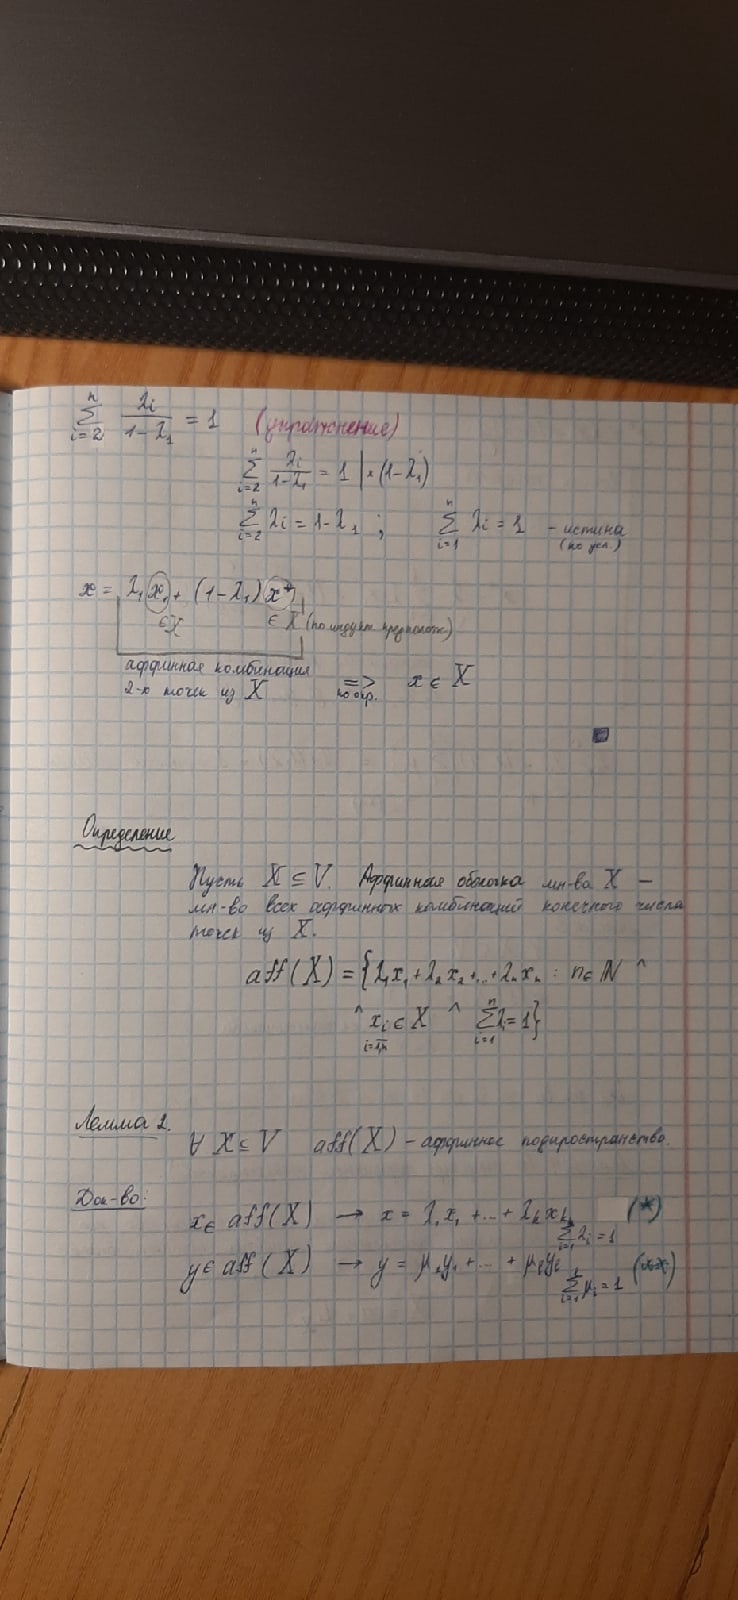 n∑i=2 λi/(1-λ1) = 1 (упражнение)
n∑i=2 λi/(1-λ1) = 1 | × (1-λ1)
n∑i=2 λi = 1-λ1 ; n∑i=1 λi = 1 - истина
(по усл.)
x = λ1 x1 + (1-λ1) x*
∈ X ∈ X (по индукт. предполож.)
аффинная комбинация
2-х точек из X => по опр. x ∈ X
Определение
Пусть X ⊆ V. Аффинная оболочка мн-ва X –
мн-во всех аффинных комбинаций конечного числа
точек из X.
aff(X) = {λ1x1 + λ2x2 + ... + λnxn : n ∈ ℕ ^
^ xi ∈ X ^ n∑i=1 λi = 1}
i=1,n
Лемма 2.
∀ X ⊆ V aff(X) – аффинное подпространство.
Док-во:
x ∈ aff(X) → x = λ1x1 + ... + λkxk (*)
k∑i=1 λi = 1
y ∈ aff(X) → y = μ1y1 + ... + μlyl (**)
l∑i=1 μi = 1